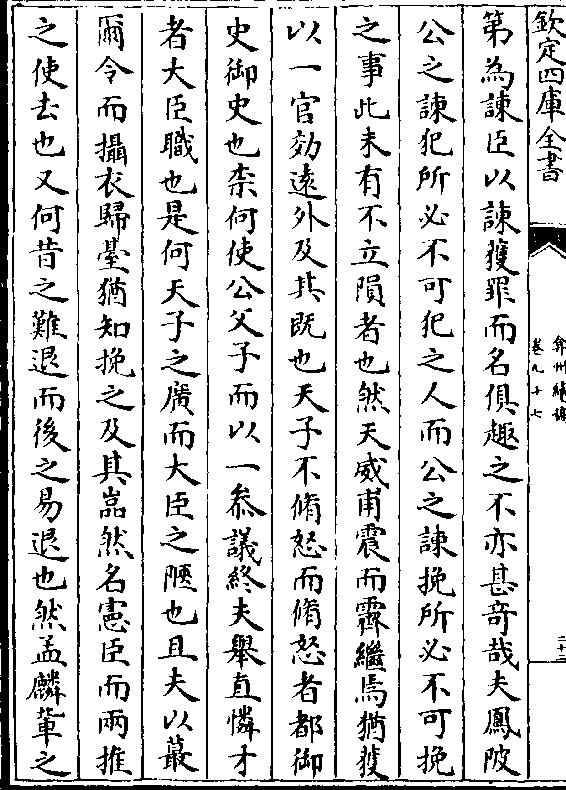 欽定四庫全書
弇州續稿
卷九十七
二十三
第為諫臣以諫獲罪而名俱趣之不亦甚奇哉夫鳳陂
公之諫犯所必不可犯之人而公之諫挽所必不可挽
之事此未有不立隕者也然天威甫震而霽繼焉猶獲
以一官効遠外及其既也天子不脩怒而脩怒者都御
史御史也柰何使公父子而以一叅議終夫舉直憐才
者大臣職也是何天子之廣而大臣之陿也且夫以蕞
爾令而攝衣歸臺猶知挽之及其嵓然名憲臣而兩推
之使去也又何昔之難退而後之易退也然孟麟輩之